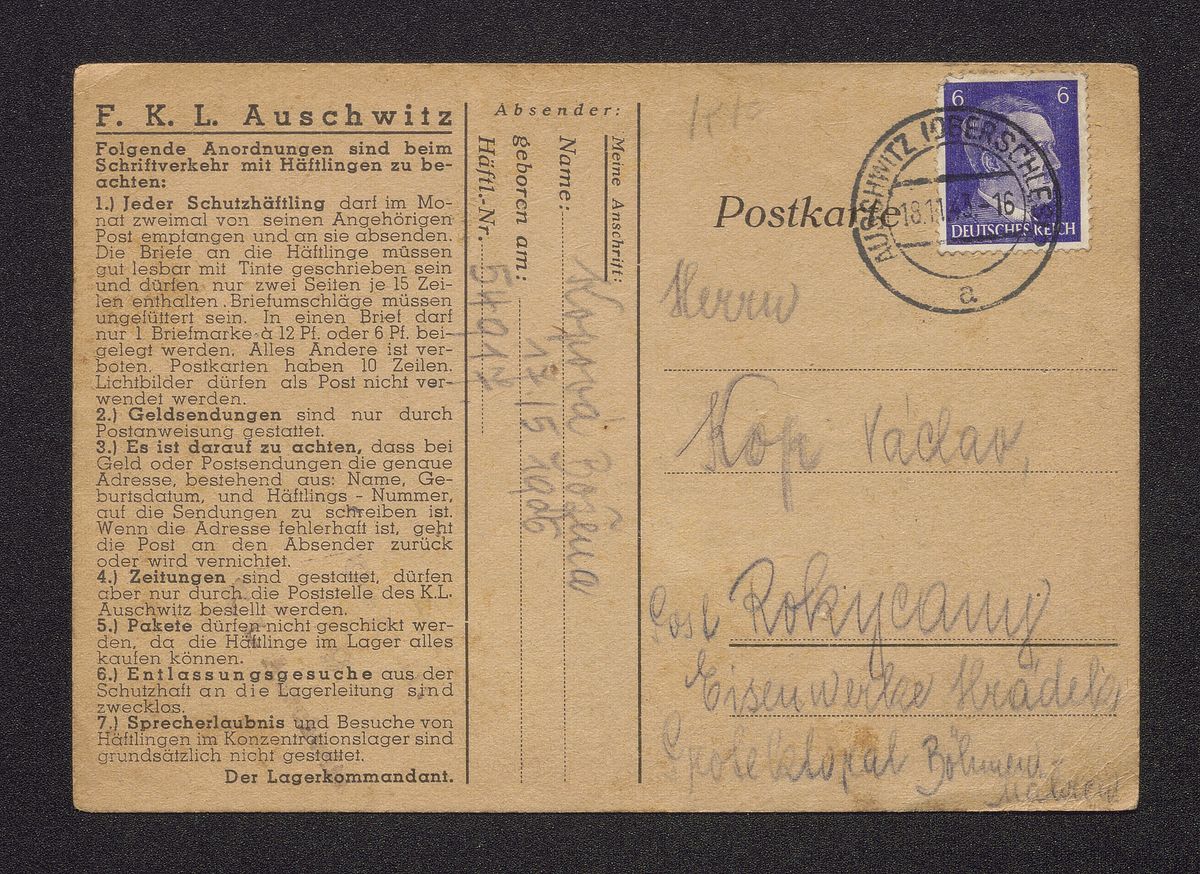 F. K. L. Auschwitz
Folgende Anordnungen sind beim
Schriftverkehr mit Häftlingen zu be-
achten:
1.) Jeder Schutzhäftling darf im Mo-
nat zweimal von seinen Angehörigen
Post empfangen und an sie absenden.
Die Briefe an die Häftlinge müssen
gut lesbar mit Tinte geschrieben sein
und dürfen nur zwei Seiten je 15 Zei-
len enthalten. Briefumschläge müssen
ungefüttert sein. In einen Brief darf
nur 1 Briefmarke à 12 Pf. oder 6 Pf. bei-
gelegt werden. Alles Andere ist ver-
boten. Postkarten haben 10 Zeilen.
Lichtbilder dürfen als Post nicht ver-
wendet werden.
2.) Geldsendungen sind nur durch
Postanweisung gestattet.
3.) Es ist darauf zu achten, dass bei
Geld oder Postsendungen die genaue
Adresse, bestehend aus: Name, Ge-
burtsdatum, und Häftlings - Nummer,
auf die Sendungen zu schreiben ist.
Wenn die Adresse fehlerhaft ist, geht
die Post an den Absender zurück
oder wird vernichtet.
4.) Zeitungen sind gestattet, dürfen
aber nur durch die Poststelle des K.L.
Auschwitz bestellt werden.
5.) Pakete dürfen nicht geschickt wer-
den, da die Häftlinge im Lager alles
kaufen können.
6.) Entlassungsgesuche aus der
Schutzhaft an die Lagerleitung sind
zwecklos.
7.) Sprecherlaubnis und Besuche von
Häftlingen im Konzentrationslager sind
grundsätzlich nicht gestattet.
Der Lagerkommandant.
Absender:
Meine Anschrift:
Name: Kopová Božena
geboren am:
Häftl.-Nr.
Postkarte
6 6
DEUTSCHES REICH
AUSCHWITZ (OBERSCHLES)
a
Herrn
Kop Václav,
Post Rokycany
Eisenwerke Hrádek
Böhmen-
Mähren